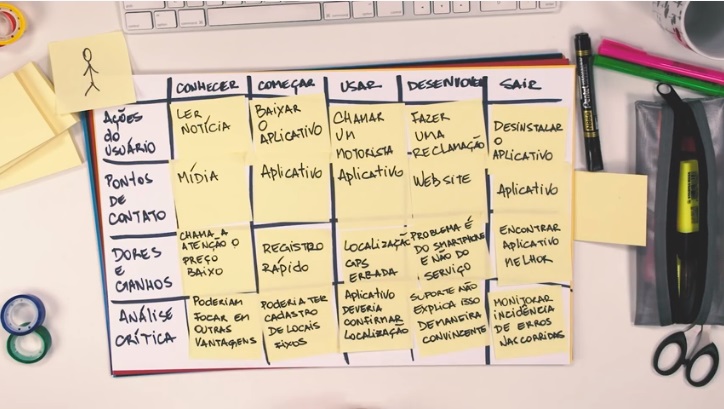 CONHECER
COMEÇAR
USAR
DESENVOLVER
SAIR
AÇÕES
DO
USUÁRIO
LER
NOTÍCIA
BAIXAR
O
APLICATIVO
CHAMAR
UM
MOTORISTA
FAZER
UMA
RECLAMAÇÃO
DESINSTALAR
O
APLICATIVO
PONTOS
DE
CONTATO
MÍDIA
APLICATIVO
APLICATIVO
WEBSITE
APLICATIVO
DORES
E
GANHOS
CHAMA A
ATENÇÃO O
PREÇO
BAIXO
REGISTRO
RÁPIDO
LOCALIZAÇÃO
GPS
ERRADA
PROBLEMA É
DO SMARTPHONE
E NÃO DO
SERVIÇO
ENCONTRAR
APLICATIVO
MELHOR
ANÁLISE
CRÍTICA
PODERIAM
FOCAR EM
OUTRAS
VANTAGENS
PODERIA TER
CADASTRO
DE LOCAIS
FIXOS
APLICATIVO
DEVERIA
CONFIRMAR
LOCALIZAÇÃO
SUPORTE NÃO
EXPLICA ISSO
DE MANEIRA
CONVINCENTE
MONITORAR
INCIDÊNCIA
DE ERROS
NAS CORRIDAS